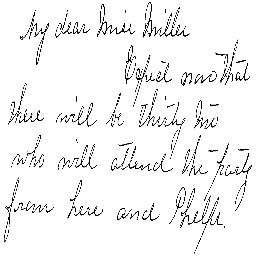 My dear Miss Miller
Expect now that
there will be thirty two
who will attend the party
from here and Shelly.